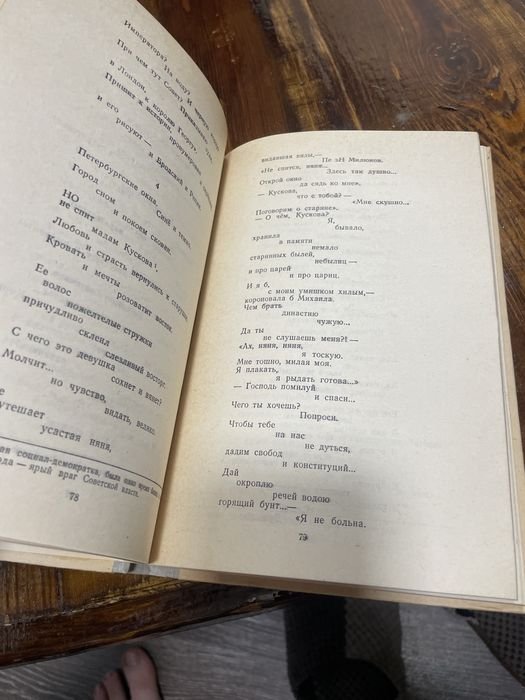 Императора? На воду? И
При чем тут Совету
в Лондон, к королю Георгу
Пришит к истории, пронумерован
и его
рисуют —
и Бродский и Репин.
4
Петербургские окна. Синё и темно.
Город сном и покоем скован.
НО
не спит мадам Кускова¹.
Любовь и страсть вернулись к старушке.
Кровать и мечты розоватит восток.
Ее
волос пожелтелые стружки
причудливо склеил слезливый восторг.
С чего это девушка сохнет и вянет?
Молчит...
но чувство,
видать, велико.
утешает
усастая няня,
социал-демократка, была одно время
ярый враг Советской власти.
78
видавшая виды,—
Пе эН Милюков.
«Не спится, няня...
Здесь так душно...
Открой окно
да сядь ко мне»,
— Кускова,
что с тобой?—
«Мне скушно...
Поговорим о старине».
— О чём, Кускова?
Я,
бывало,
хранила
в памяти
немало
старинных былей,
небылиц —
и про царей
и про цариц.
И я б,
с моим умишком хилым,—
короновала б Михаила.
Чем брать
династию
чужую...
Да ты
не слушаешь меня?! —
«Ах, няня, няня,
я тоскую.
Мне тошно, милая моя.
Я плакать,
я рыдать готова...»
— Господь помилуй
и спаси...
Чего ты хочешь?
Попроси.
Чтобы тебе
на нас
не дуться,
дадим свобод
и конституций...
Дай
окроплю
речей водою
горящий бунт...—
«Я не больна.
79